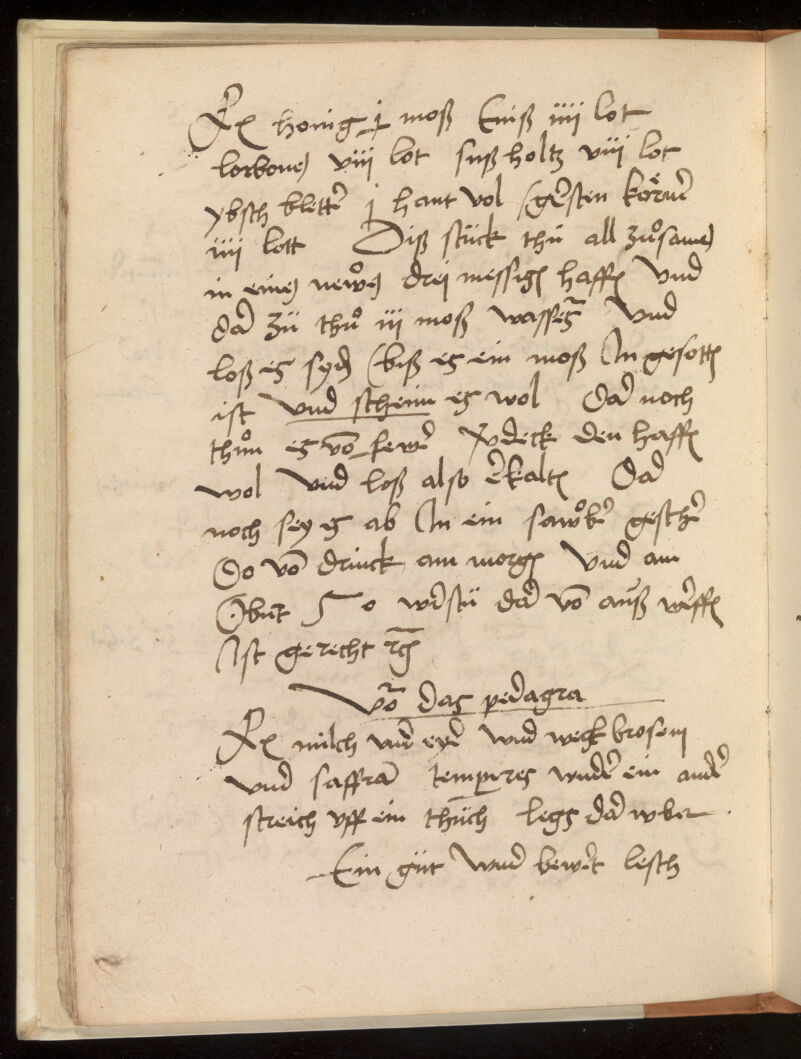 Rx honig j moß Eniß iiii lot
lorbonn viii lot suß holtz viii lot
ybsch bletter j hant vol gersten körner
iiii lott Diß stück thu all zuͦsamen
in einen newen drei messigen haffen Vnd
dar zü thuͦ iii moß wassers Vnd
loß es syden biß es ein moß In gesotten
ist vnd scheim es wol Dar noch
thuͦn es von fewer Vordeck den haffen
wol Vnd loß also erkalten Dar
noch sey es ab In ein sawber geschir
Do von drinck am morgen Vnd am
Obent So wirstu dar von auß werffen
Ist gerecht
Vor das pedagra
Rx milch vnd eyer vnd weck brosem
Vnd saffran tempires vnder ein ander
streich vff ein thüch legs dar vber
Ein güt vnd bewert lesch